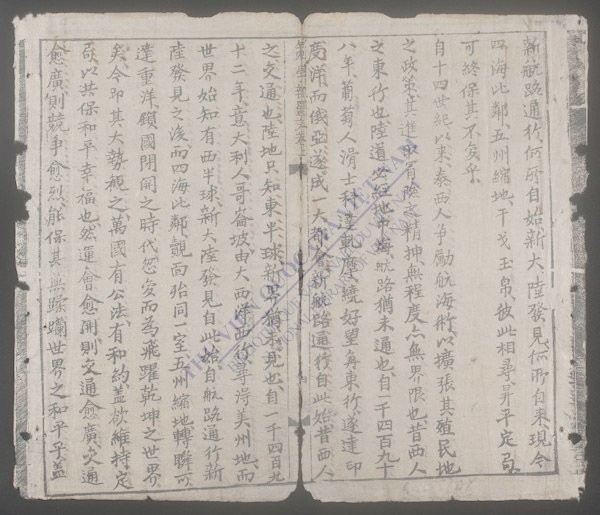 新航路通行何所自始新大陸發見何所自来現今
四海比鄰五州縮地干戈玉帛彼此相尋昇平定局
可終保其不變乎
自十四世紀以来泰西人爭勵航海術以擴張其殖民地
之政策其進取冒險之精神無程度亦無界限也昔西人
之東行也陸道必經地中海航路猶未通也自一千四百九十
八年葡萄人滑士科達乳麾繞好望角東行遂達印
度洋而俄亞遂成一大都會新航路通行自此始昔西人
之交通也陸地只知東半球新界猶未見也自一千四百九
十二年意大利人哥崙坡由大西洋西行尋淂美州地而
世界始知有西半球新大陸發見自此始自航路通行新
陸發見之後而四海比鄰覿面殆同一室五州縮地轉瞬可
達重洋鎖國閉關之時代忽変而為飛躍乾坤之世界
矣今即其大勢觀之萬國有公法有和約蓋欲維持定
局以共保和平幸福也然運會愈開則交通愈廣交通
愈廣則競爭愈烈能保其無蹂躪世界之和平乎蓋
THƯ VIỆN QUỐC GIA VIỆT NAM